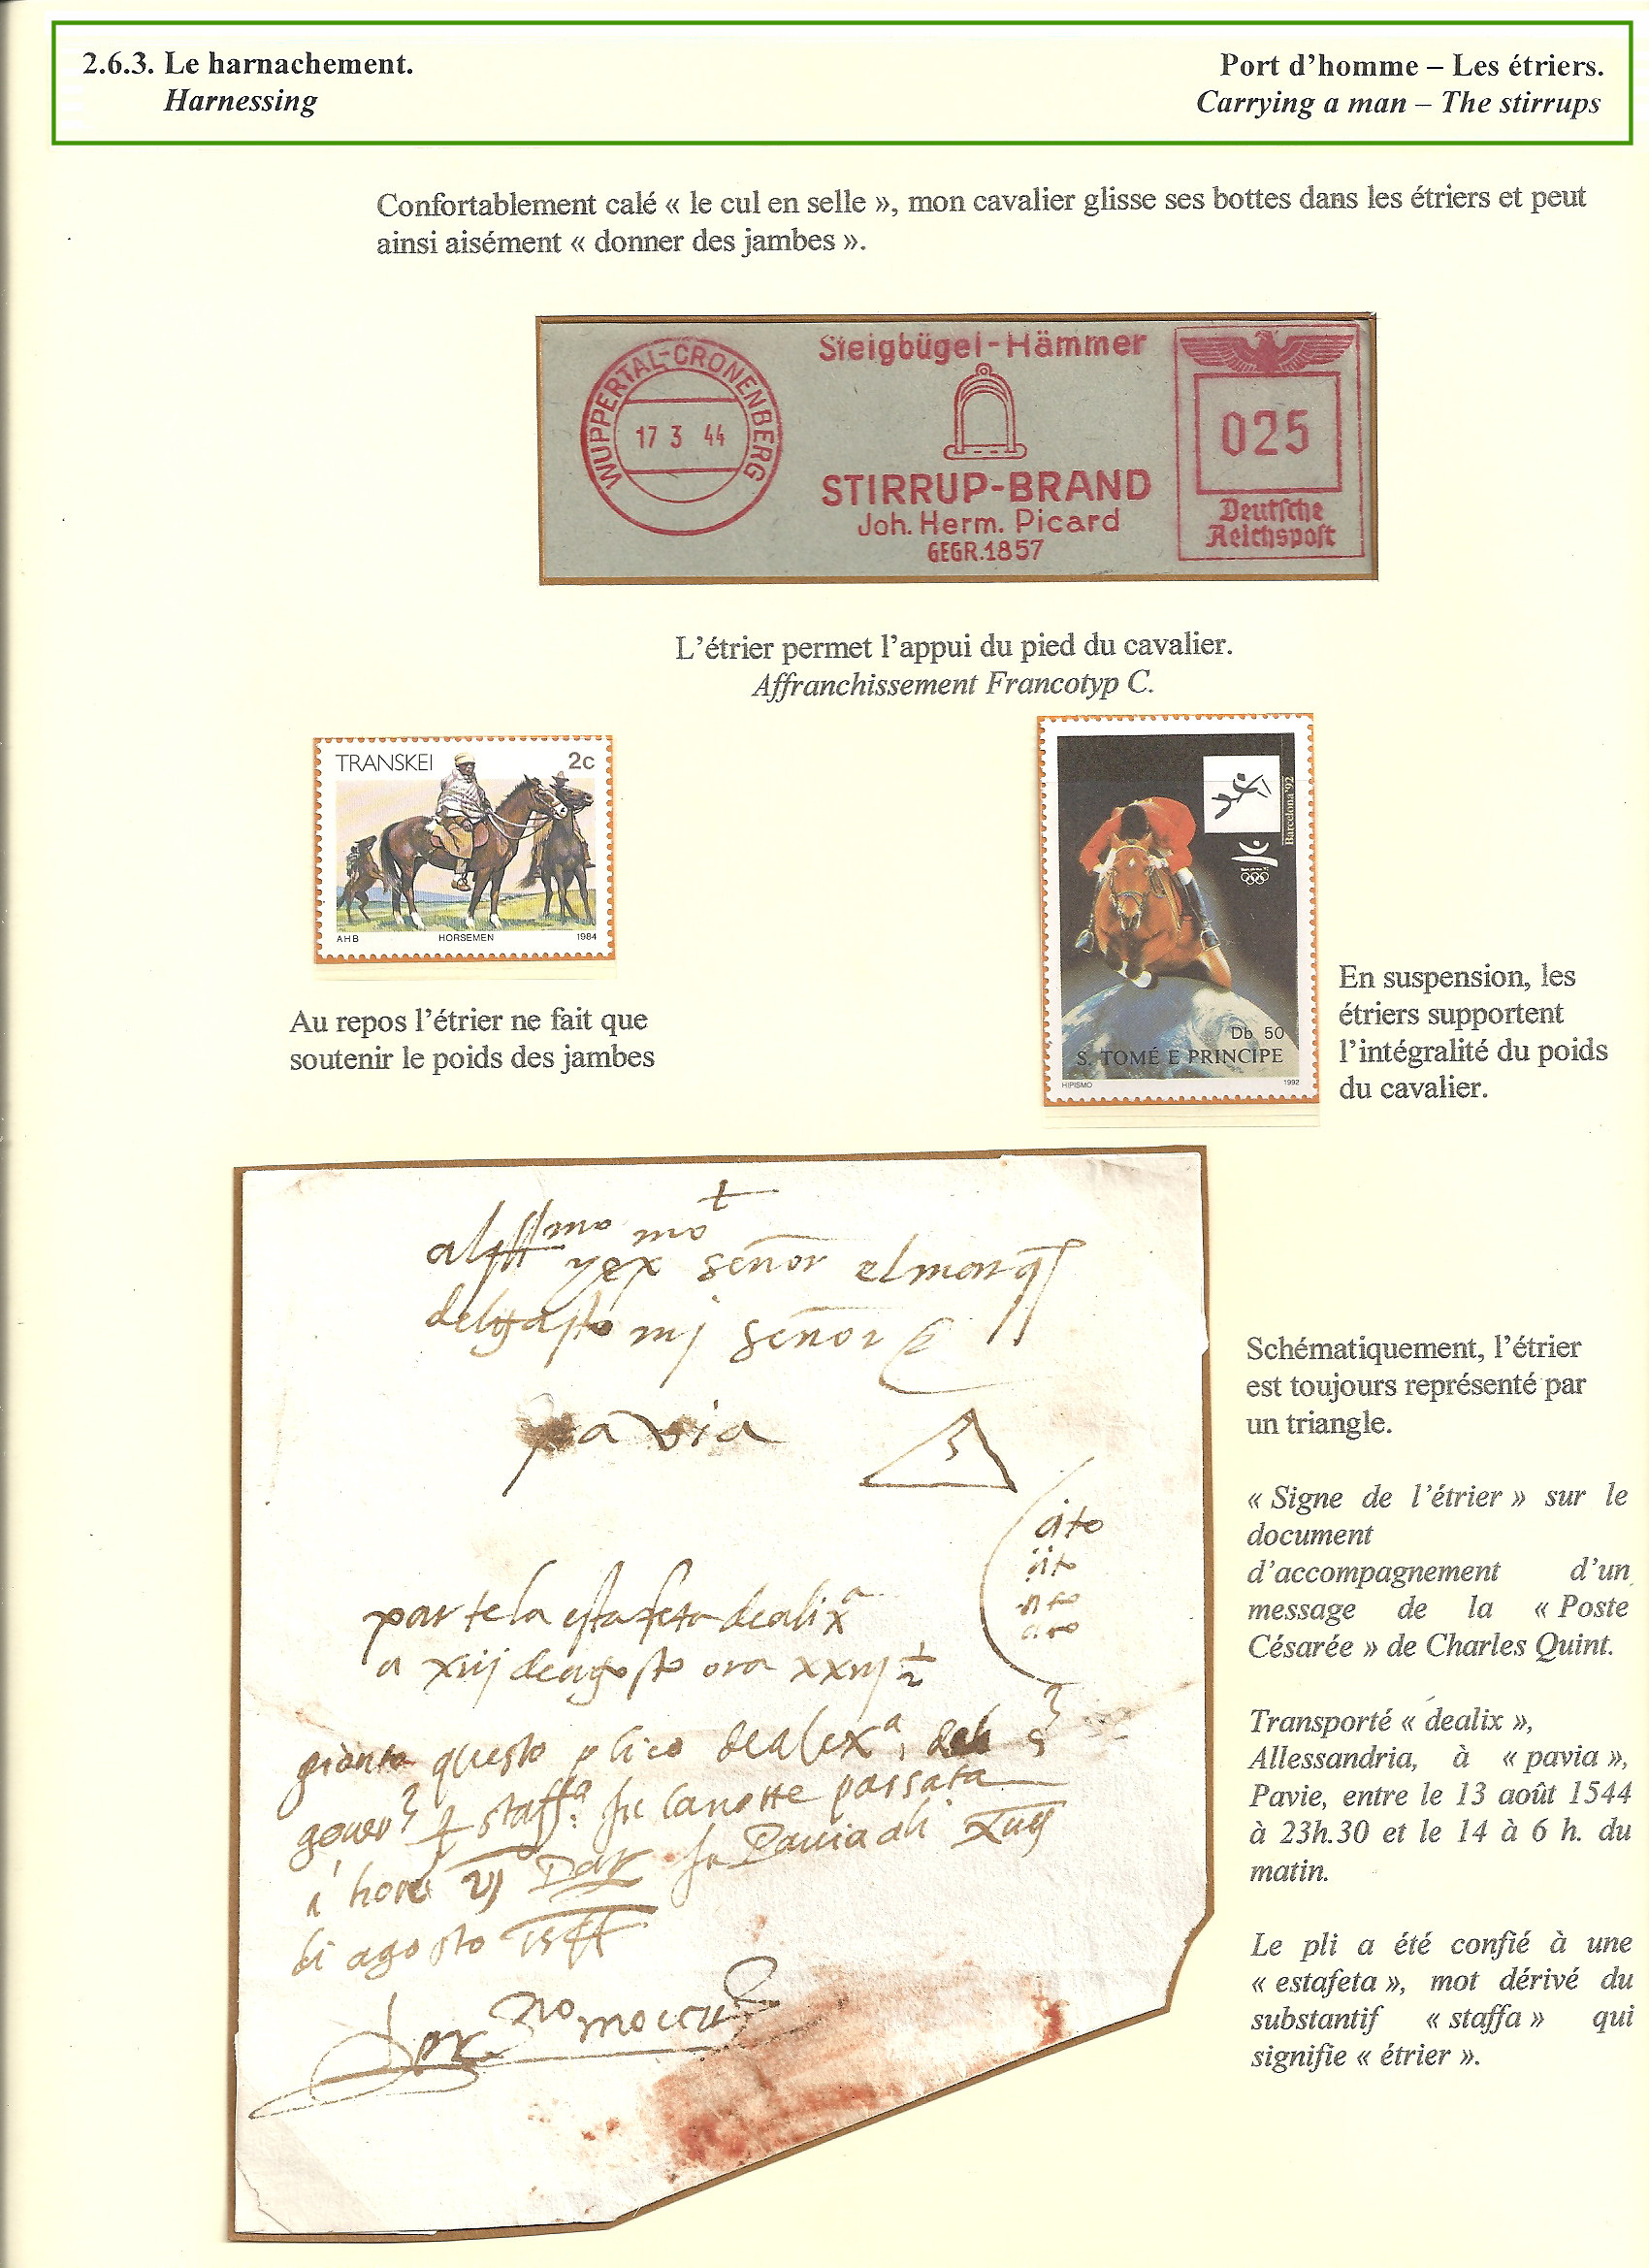 2.6.3. Le harnachement.
Harnessing
Port d’homme – Les étriers.
Carrying a man – The stirrups
Confortablement calé « le cul en selle », mon cavalier glisse ses bottes dans les étriers et peut
ainsi aisément « donner des jambes ».
WUPPERTAL-CRONENBERG
17 3 44
Steigbügel-Hämmer
STIRRUP-BRAND
Joh. Herm. Picard
GEGR.1857
025
Deutsche
Reichspost
L’étrier permet l’appui du pied du cavalier.
Affranchissement Francotyp C.
TRANSKEI 2c
AHB HORSEMEN 1984
Au repos l’étrier ne fait que
soutenir le poids des jambes
Barcelona'92
Db 50
S. TOMÉ E PRINCIPE
HIPISMO 1992
En suspension, les
étriers supportent
l’intégralité du poids
du cavalier.
señor el marq
del gasto mj señor
pavia
S
cito
cito
cito
cito
por te la estafeta de alixa
a xiij de agosto ora xxiij ½
gionto questo plico de alexa
staffa la notte passata
hore Pavia
di agosto 1544
Schématiquement, l’étrier
est toujours représenté par
un triangle.
« Signe de l’étrier » sur le
document
d’accompagnement d’un
message de la « Poste
Césarée » de Charles Quint.
Transporté « dealix »,
Allessandria, à « pavia »,
Pavie, entre le 13 août 1544
à 23h.30 et le 14 à 6 h. du
matin.
Le pli a été confié à une
« estafeta », mot dérivé du
substantif « staffa » qui
signifie « étrier ».